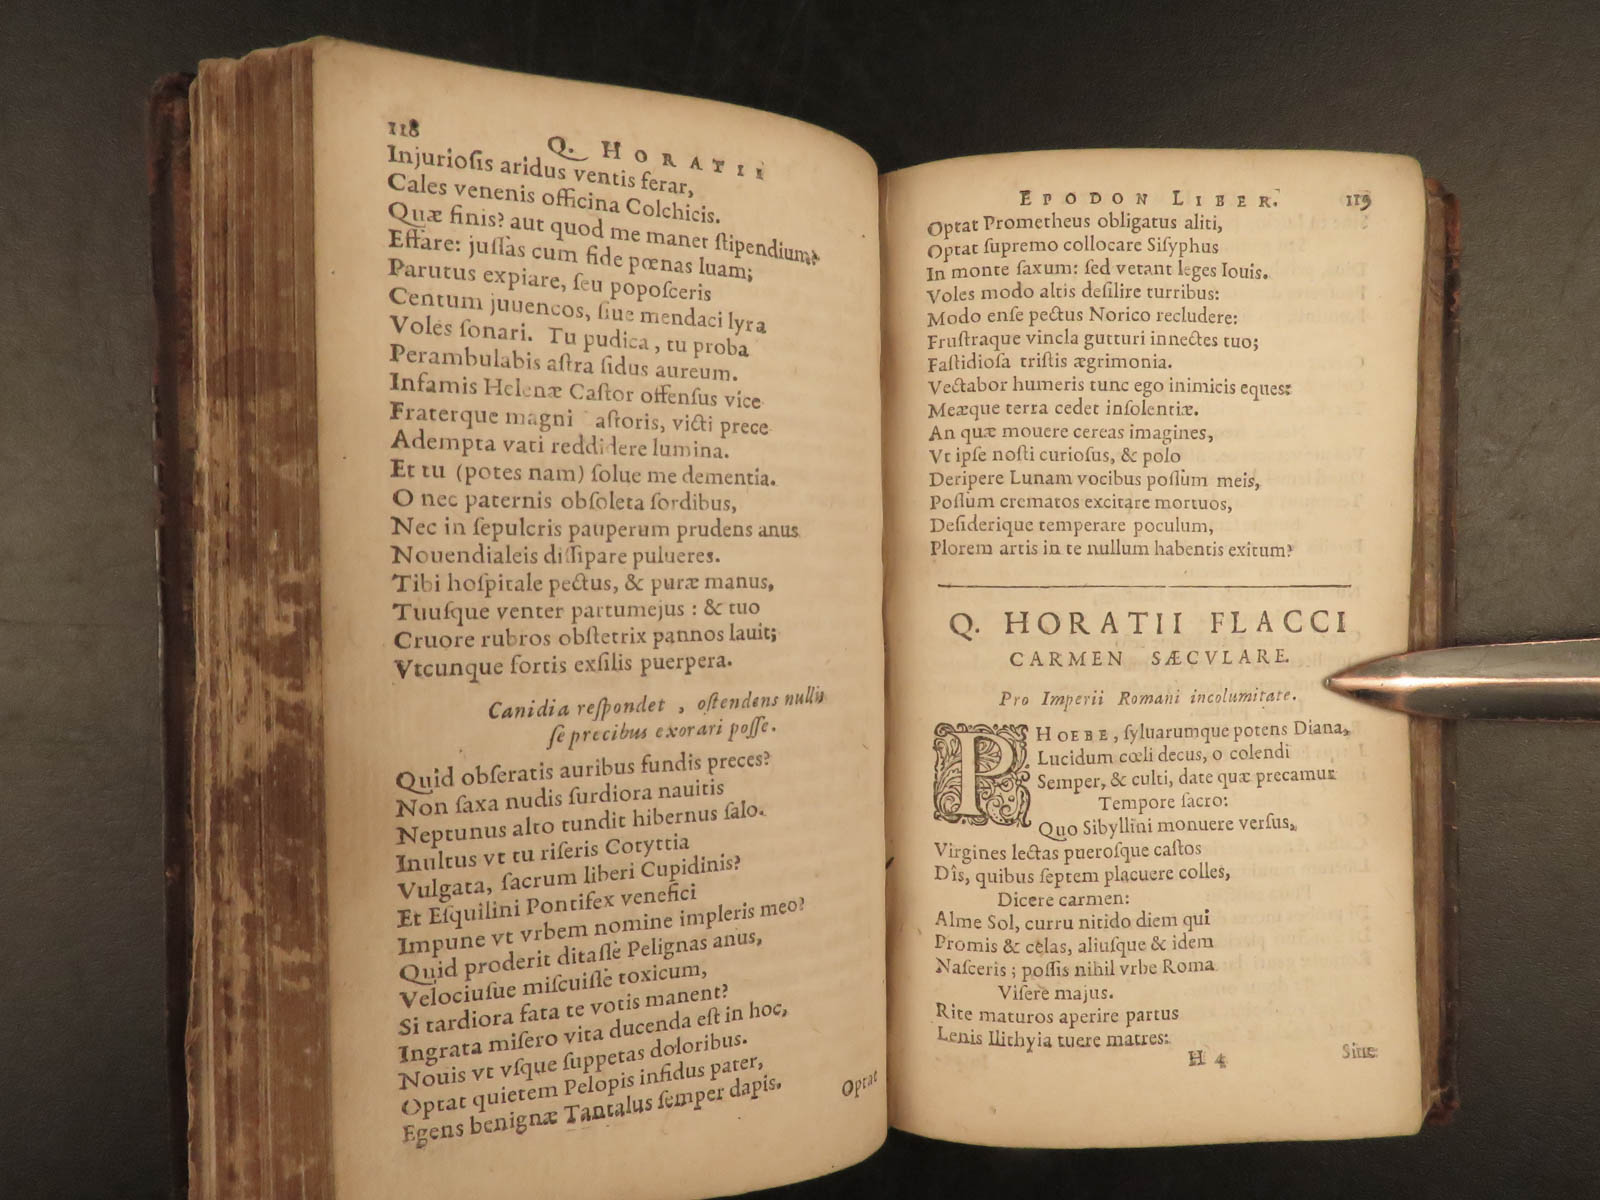 118
Q. HORATII
Injuriosis aridus ventis ferar,
Cales venenis officina Colchicis.
Quæ finis? aut quod me manet stipendium?
Effare: jussàs cum fide pœnas luam;
Parutus expiare, seu poposceris
Centum juuencos, siue mendaci lyra
Voles sonari. Tu pudica, tu proba
Perambulabis astra sidus aureum.
Infamis Helenæ Castor offensus vice
Fraterque magni astoris, victi prece
Adempta vati reddidere lumina.
Et tu (potes nam) solue me dementia.
O nec paternis obsoleta sordibus,
Nec in sepulcris pauperum prudens anus
Nouendialeis dissipare pulueres.
Tibi hospitale pectus, & puræ manus,
Tuusque venter partumejus : & tuo
Cruore rubros obstetrix pannos lauit;
Vtcunque fortis exsilis puerpera.
Canidia respondet, ostendens nullis
se precibus exorari posse.
Quid obseratis auribus fundis preces?
Non saxa nudis surdiora nauitis
Neptunus alto tundit hibernus salo.
Inultus vt tu riseris Cotyttia
Vulgata, sacrum liberi Cupidinis?
Et Esquilini Pontifex venefici
Impune vt vrbem nomine impleris meo?
Quid proderit ditasse Pelignas anus,
Velociusue miscuisse toxicum,
Si tardiora fata te votis manent?
Ingrata misero vita ducenda est in hoc,
Nouis vt vsque suppetas doloribus.
Optat quietem Pelopis infidus pater,
Egens benignæ Tantalus semper dapis.
Optat
EPODON LIBER. 119
Optat Prometheus obligatus aliti,
Optat supremo collocare Sisyphus
In monte saxum: sed vetant leges Iouis.
Voles modo altis desilire turribus:
Modo ense pectus Norico recludere:
Frustraque vincla gutturi innectes tuo;
Fastidiosa tristis ægrimonia.
Vectabor humeris tunc ego inimicis eques:
Meæque terra cedet insolentiæ.
An quæ mouere cereas imagines,
Vt ipse nosti curiosus, & polo
Deripere Lunam vocibus possum meis,
Possum crematos excitare mortuos,
Desiderique temperare poculum,
Plorem artis in te nullum habentis exitum?
Q. HORATII FLACCI
CARMEN SÆCVLARE.
Pro Imperii Romani incolumitate.
PHOEBE, syluarumque potens Diana,
Lucidum cœli decus, o colendi
Semper, & culti, date quæ precamur
Tempore sacro:
Quo Sibyllini monuere versus,
Virgines lectas puerosque castos
Dîs, quibus septem placuere colles,
Dicere carmen:
Alme Sol, curru nitido diem qui
Promis & celas, aliusque & idem
Nasceris ; possis nihil vrbe Roma
Visere majus.
Rite maturos aperire partus
Lenis Ilithyia tuere matres:
H 4 Siue